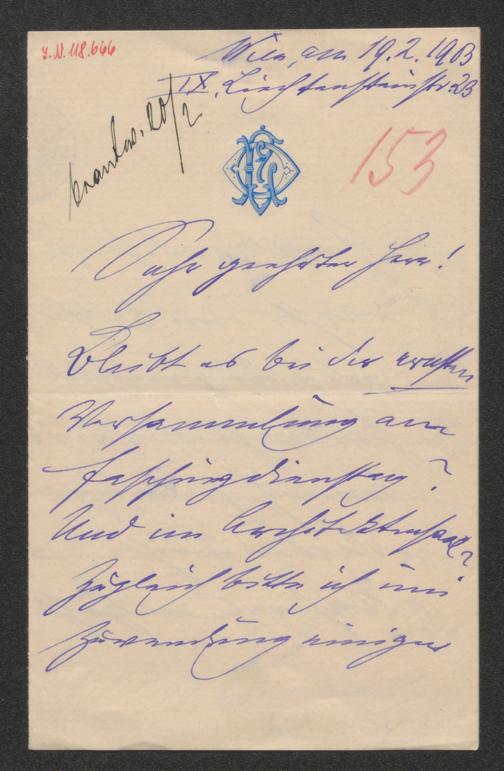 J.N. 118.666
Wien, am 19.2.1903
IX. Liechtensteinstr. 23
beantw. 20/2
153
Sehr geehrter Herr!
Bleibt es bei der ernsten
Versammlung am
Faschingdienstag?
Und im Architektensaal?
Zugleich bitte ich um
Zuwendung einiger